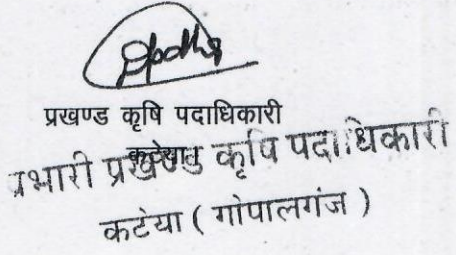 प्रखण्ड कृषि पदाधिकारी
कटेया
प्रभारी प्रखण्ड कृषि पदाधिकारी
कटेया ( गोपालगंज )